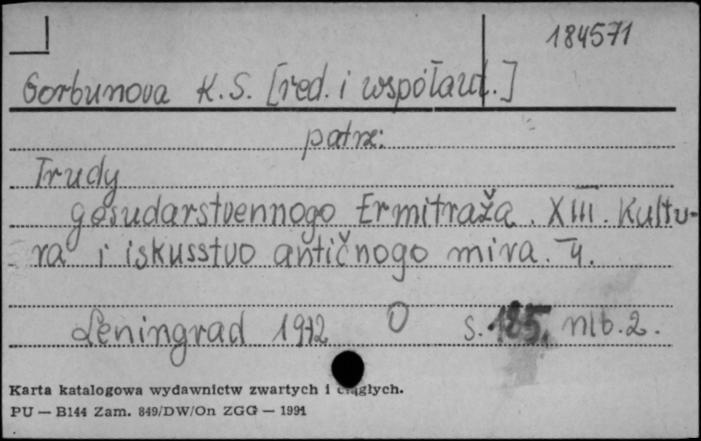 184571
Gorbunova K.S. [red. i współaut.]
patrz:
Trudy
gosudarstvennogo Ermitraža. XIII. Kultu-
ra i iskusstvo antičnogo mira. 4.
Leningrad 1972 O s. 185, nlb. 2.
Karta katalogowa wydawnictw zwartych i ciągłych.
PU — B144 Zam. 849/DW/On ZGG — 1991